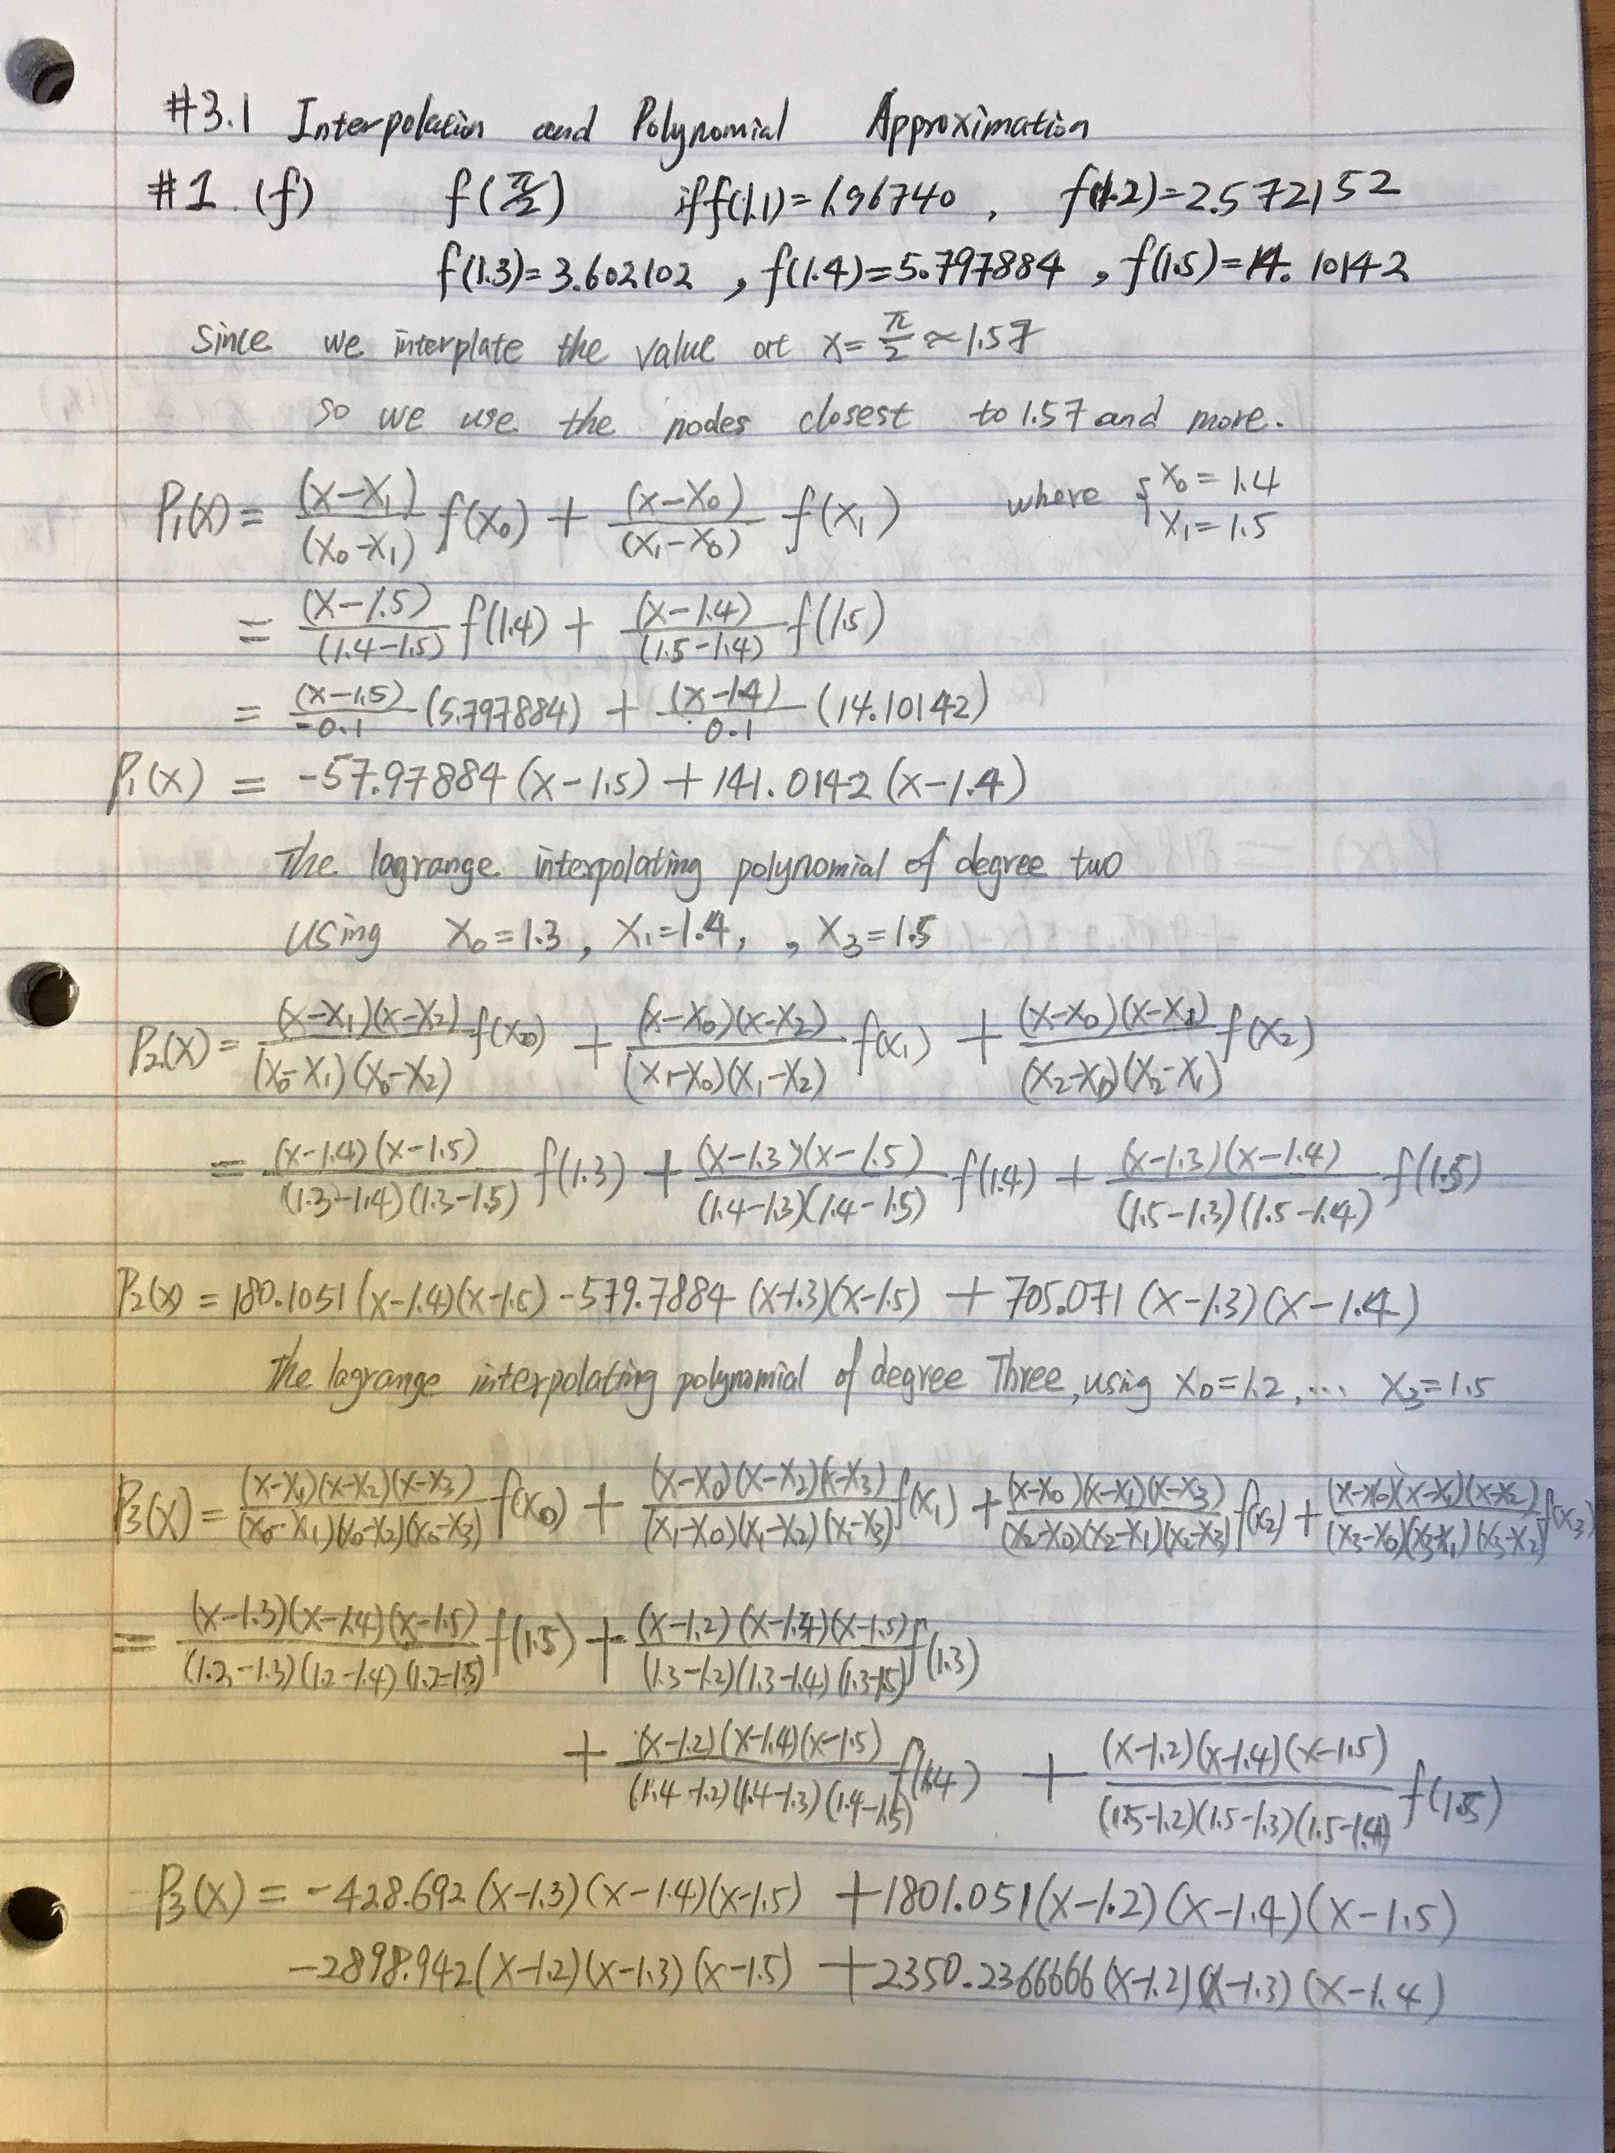 #3.1 Interpolation and Polynomial Approximation
#1 (f) f(π/2) if f(1.1)=1.96740 , f(1.2)=2.572152
f(1.3)=3.602102 , f(1.4)=5.797884 , f(1.5)=14.10142
Since we interplate the value at x=π/2≈1.57
so we use the nodes closest to 1.57 and more.
P₁(x) = (x-x₁)/(x₀-x₁) f(x₀) + (x-x₀)/(x₁-x₀) f(x₁) where { x₀=1.4 x₁=1.5
= (x-1.5)/(1.4-1.5) f(1.4) + (x-1.4)/(1.5-1.4) f(1.5)
= (x-1.5)/-0.1 (5.797884) + (x-1.4)/0.1 (14.10142)
P₁(x) = -57.97884(x-1.5)+141.0142(x-1.4)
The lagrange interpolating polynomial of degree two
using x₀=1.3 , x₁=1.4, , x₃=1.5
P₂(x)= (x-x₁)(x-x₂)/(x₀-x₁)(x₀-x₂) f(x₀) + (x-x₀)(x-x₂)/(x₁-x₀)(x₁-x₂) f(x₁) + (x-x₀)(x-x₁)/(x₂-x₀)(x₂-x₁) f(x₂)
= (x-1.4)(x-1.5)/(1.3-1.4)(1.3-1.5) f(1.3) + (x-1.3)(x-1.5)/(1.4-1.3)(1.4-1.5) f(1.4) + (x-1.3)(x-1.4)/(1.5-1.3)(1.5-1.4) f(1.5)
P₂(x) = 180.1051(x-1.4)(x-1.5) -579.7884(x-1.3)(x-1.5) + 705.071(x-1.3)(x-1.4)
The lagrange interpolating polynomial of degree Three, using x₀=1.2, ... x₃=1.5
P₃(x) = (x-x₁)(x-x₂)(x-x₃)/(x₀-x₁)(x₀-x₂)(x₀-x₃) f(x₀) + (x-x₀)(x-x₂)(x-x₃)/(x₁-x₀)(x₁-x₂)(x₁-x₃) f(x₁) + (x-x₀)(x-x₁)(x-x₃)/(x₂-x₀)(x₂-x₁)(x₂-x₃) f(x₂) + (x-x₀)(x-x₁)(x-x₂)/(x₃-x₀)(x₃-x₁)(x₃-x₂) f(x₃)
= (x-1.3)(x-1.4)(x-1.5)/(1.2-1.3)(1.2-1.4)(1.2-1.5) f(1.5) + (x-1.2)(x-1.4)(x-1.5)/(1.3-1.2)(1.3-1.4)(1.3-1.5) f(1.3)
+ (x-1.2)(x-1.4)(x-1.5)/(1.4-1.2)(1.4-1.3)(1.4-1.5) f(1.4) + (x-1.2)(x-1.4)(x-1.5)/(1.5-1.2)(1.5-1.3)(1.5-1.4) f(1.5)
P₃(x) = -428.692(x-1.3)(x-1.4)(x-1.5) +1801.051(x-1.2)(x-1.4)(x-1.5)
-2898.942(x-1.2)(x-1.3)(x-1.5) +2350.2366666(x-1.2)(x-1.3)(x-1.4)